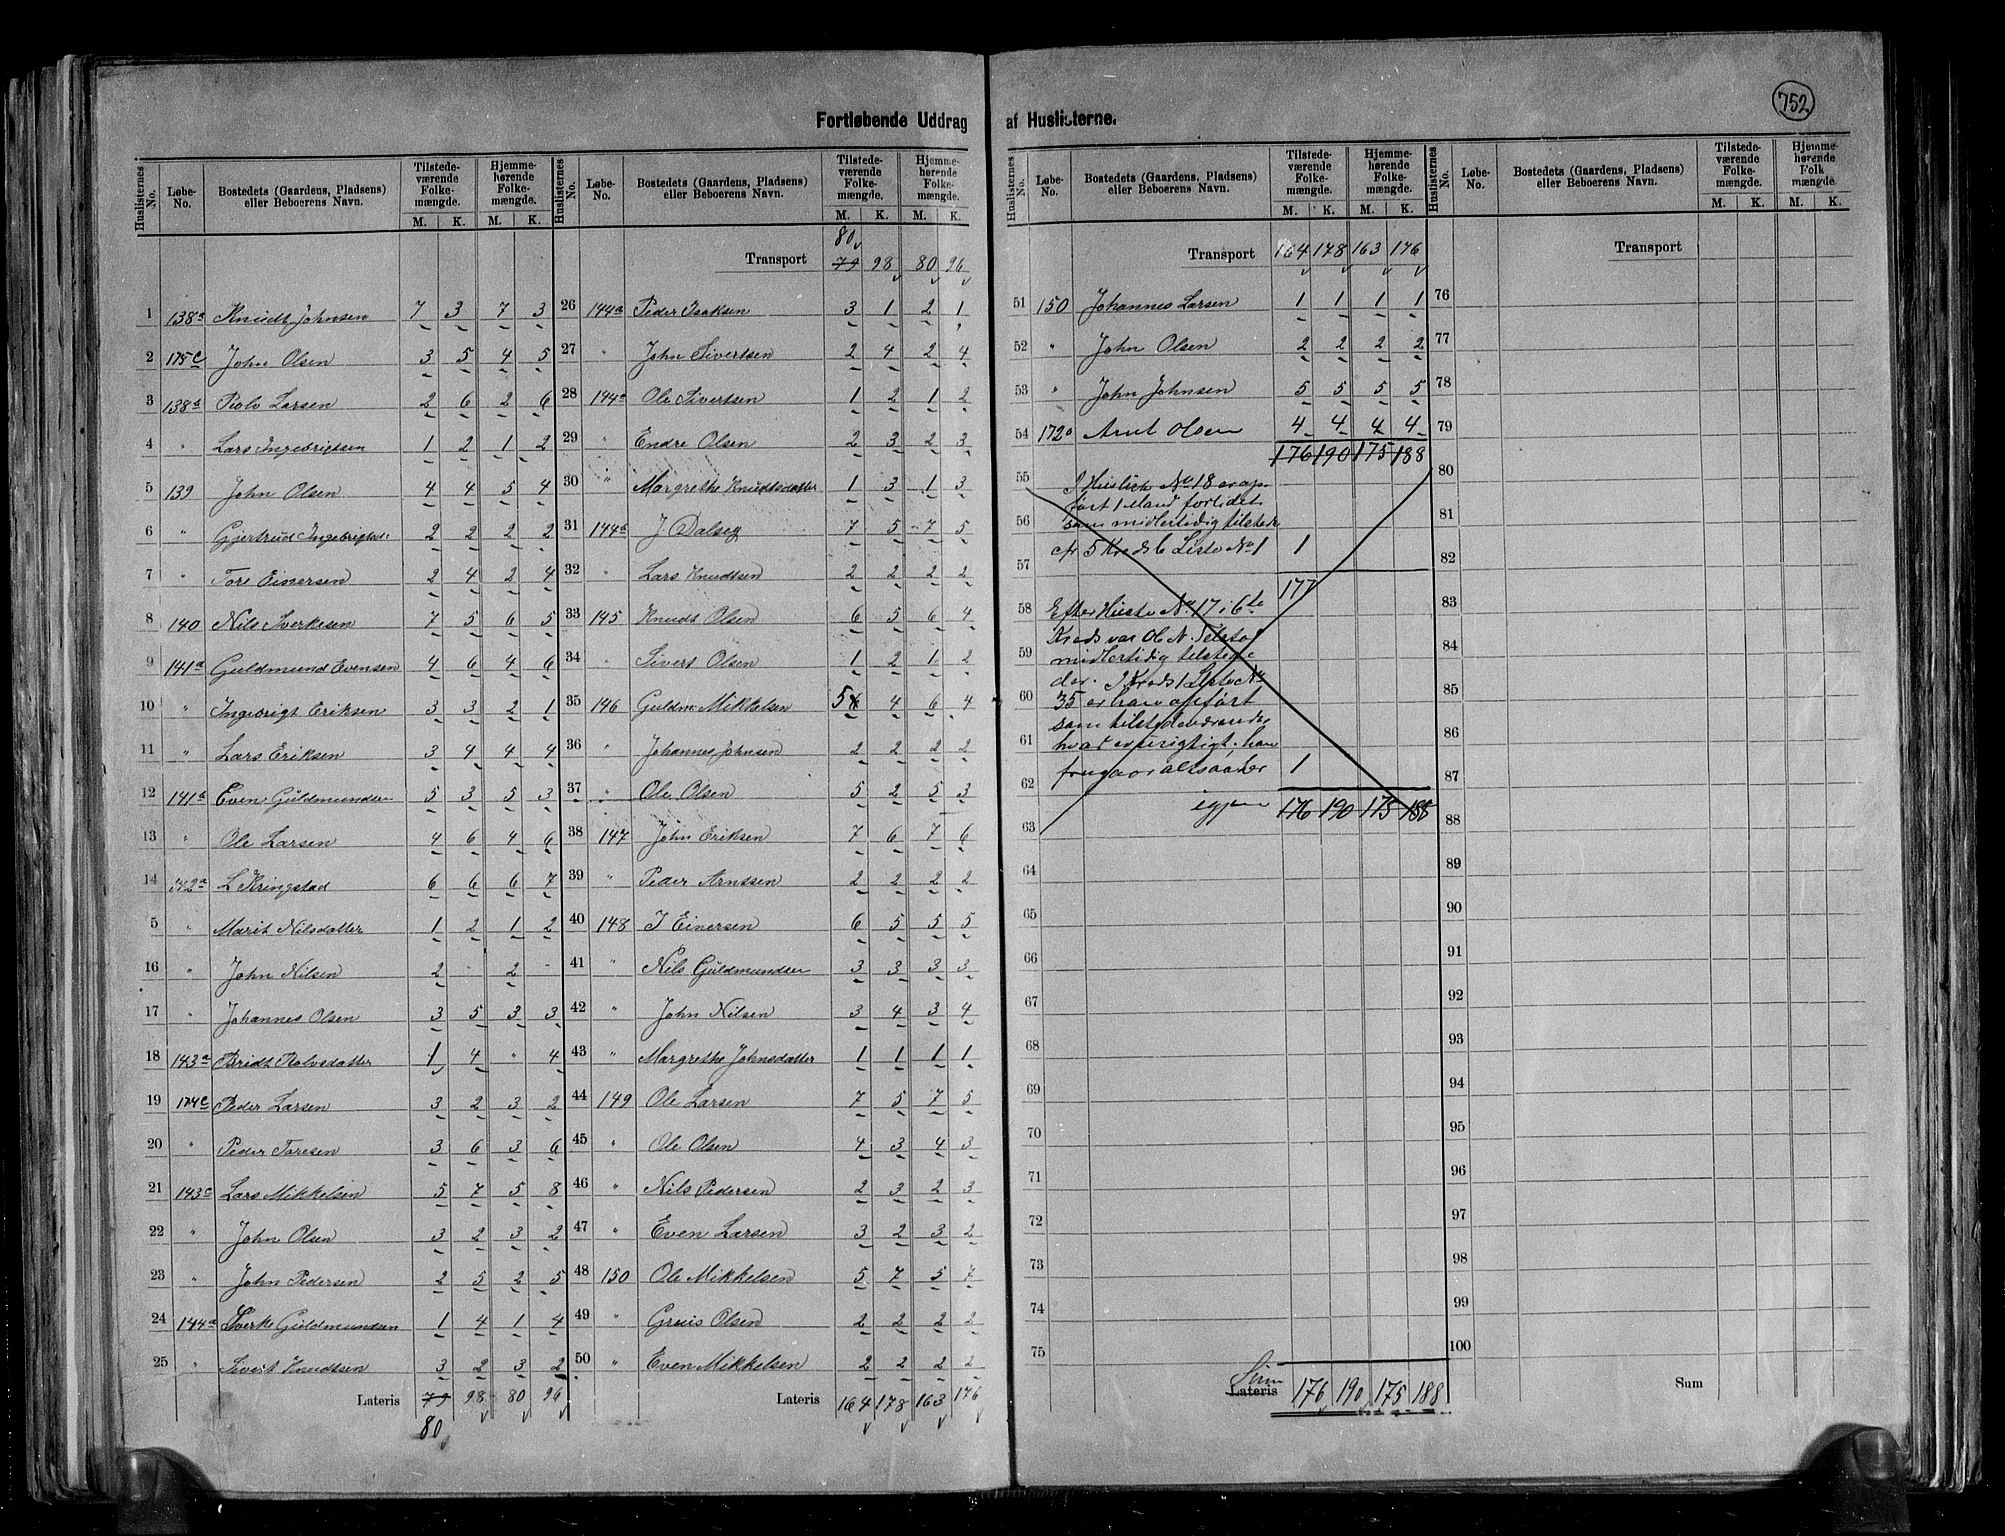 752
Fortløbende Uddrag af Huslisterne.
Huslisternes No. Løbe-No. Bostedets (Gaardens, Pladsens) eller Beboerens Navn. Tilstede-værende Folke-mængde. M. K. Hjemme-hørende Folke-mængde. M. K.
1 138a Knudt Johnsen 7 3 7 3
2 175c John Olsen 3 5 4 5
3 138a Rolv Larsen 2 6 2 6
4 " Lars Ingebrigtsen 1 2 1 2
5 139 John Olsen 4 4 5 4
6 " Gjertrud Ingebrigtsd: 2 2 2 2
7 " Tore Einersen 2 4 2 4
8 140 Nils Sverkesen 7 5 6 5
9 141a Guldmund Evensen 4 6 4 6
10 " Ingebrigt Eriksen 3 3 2 1
11 " Lars Eriksen 3 4 4 4
12 141a Even Guldmundsen 5 3 5 3
13 " Ole Larsen 4 6 4 6
14 142a L Kringstad 6 6 6 7
5 " Marit Nilsdatter 1 2 1 2
16 " John Nilsen 2 - 2 -
17 " Johannes Olsen 3 5 3 3
18 143a Bridt Rolvsdatter 1 4 " 4
19 174c Peder Larsen 3 2 3 2
20 " Peder Toresen 3 6 3 6
21 143c Lars Mikkelsen 5 7 5 8
22 " John Olsen 3 2 3 2
23 " John Pedersen 2 5 2 5
24 144a Sverke Guldmundsen 1 4 1 4
25 " Sivert Knudtsen 3 2 3 2
Lateris 79 98 80 96
80
Huslisternes No. Løbe-No. Bostedets (Gaardens, Pladsens) eller Beboerens Navn. Tilstede-værende Folke-mængde. M. K. Hjemme-hørende Folke-mængde. M. K.
80
Transport 79 98 80 96
26 144a Peder Isaksen 3 1 2 1
27 " John Sivertsen 2 4 2 4
28 144a Ole Sivertsen 1 2 1 2
29 " Endre Olsen 2 3 2 3
30 " Margrethe Knudtsdatter 1 3 1 3
31 144a J Dalseg 7 5 7 5
32 " Lars Knudtsen 2 2 2 2
33 145 Knudt Olsen 6 5 6 4
34 " Sivert Olsen 1 2 1 2
35 146 Guldm: Mikkelsen 5 4 6 4
36 " Johannes Johnsen 2 2 2 2
37 " Ole Olsen 5 2 5 3
38 147 John Eriksen 7 6 7 6
39 " Peder Arntsen 2 2 2 2
40 148 I Einersen 6 5 5 5
41 " Nils Guldmundsen 3 3 3 3
42 " John Nilsen 3 4 3 4
43 " Margrethe Johnsdatter 1 1 1 1
44 149 Ole Larsen 7 5 7 5
45 " Ole Olsen 4 3 4 3
46 " Nils Pedersen 2 3 2 3
47 " Even Larsen 3 2 3 2
48 150 Ole Mikkelsen 5 7 5 7
49 " Greiis Olsen 2 2 2 2
50 " Even Mikkelsen 2 2 2 2
Lateris 164 178 163 176
Huslisternes No. Løbe-No. Bostedets (Gaardens, Pladsens) eller Beboerens Navn. Tilstede-værende Folke-mængde. M. K. Hjemme-hørende Folke-mængde. M. K.
Transport 164 178 163 176
51 150 Johannes Larsen 1 1 1 1
52 " John Olsen 2 2 2 2
53 " John Johnsen 5 5 5 5
54 172 Arnt Olsen 4 4 4 4
176 190 175 188
55 I Husliste No 18 er op-
ført 1 Mand forlidet
56 som midlertidig tilstede
cfr 5 Kreds Liste No 1 1
57
177
58 Efter Hliste No 17 i 6te
Kreds var Ole N.
59 midlertidig tilstede
der. I Kreds 1 Liste No
60 35 er han opført
som tilstedeværende,
61 hvad er urigtigt; han
fragaar altsaa her 1
62
igjen 176 190 175 188
63
64
65
66
67
68
69
70
71
72
73
74
75
Sum
Lateris 176 190 175 188
Huslisternes No. Løbe-No. Bostedets (Gaardens, Pladsens) eller Beboerens Navn. Tilstede-værende Folke-mængde. M. K. Hjemme-hørende Folk mængde. M. K.
Transport
76
77
78
79
80
81
82
83
84
85
86
87
88
89
90
91
92
93
94
95
96
97
98
99
100
Sum